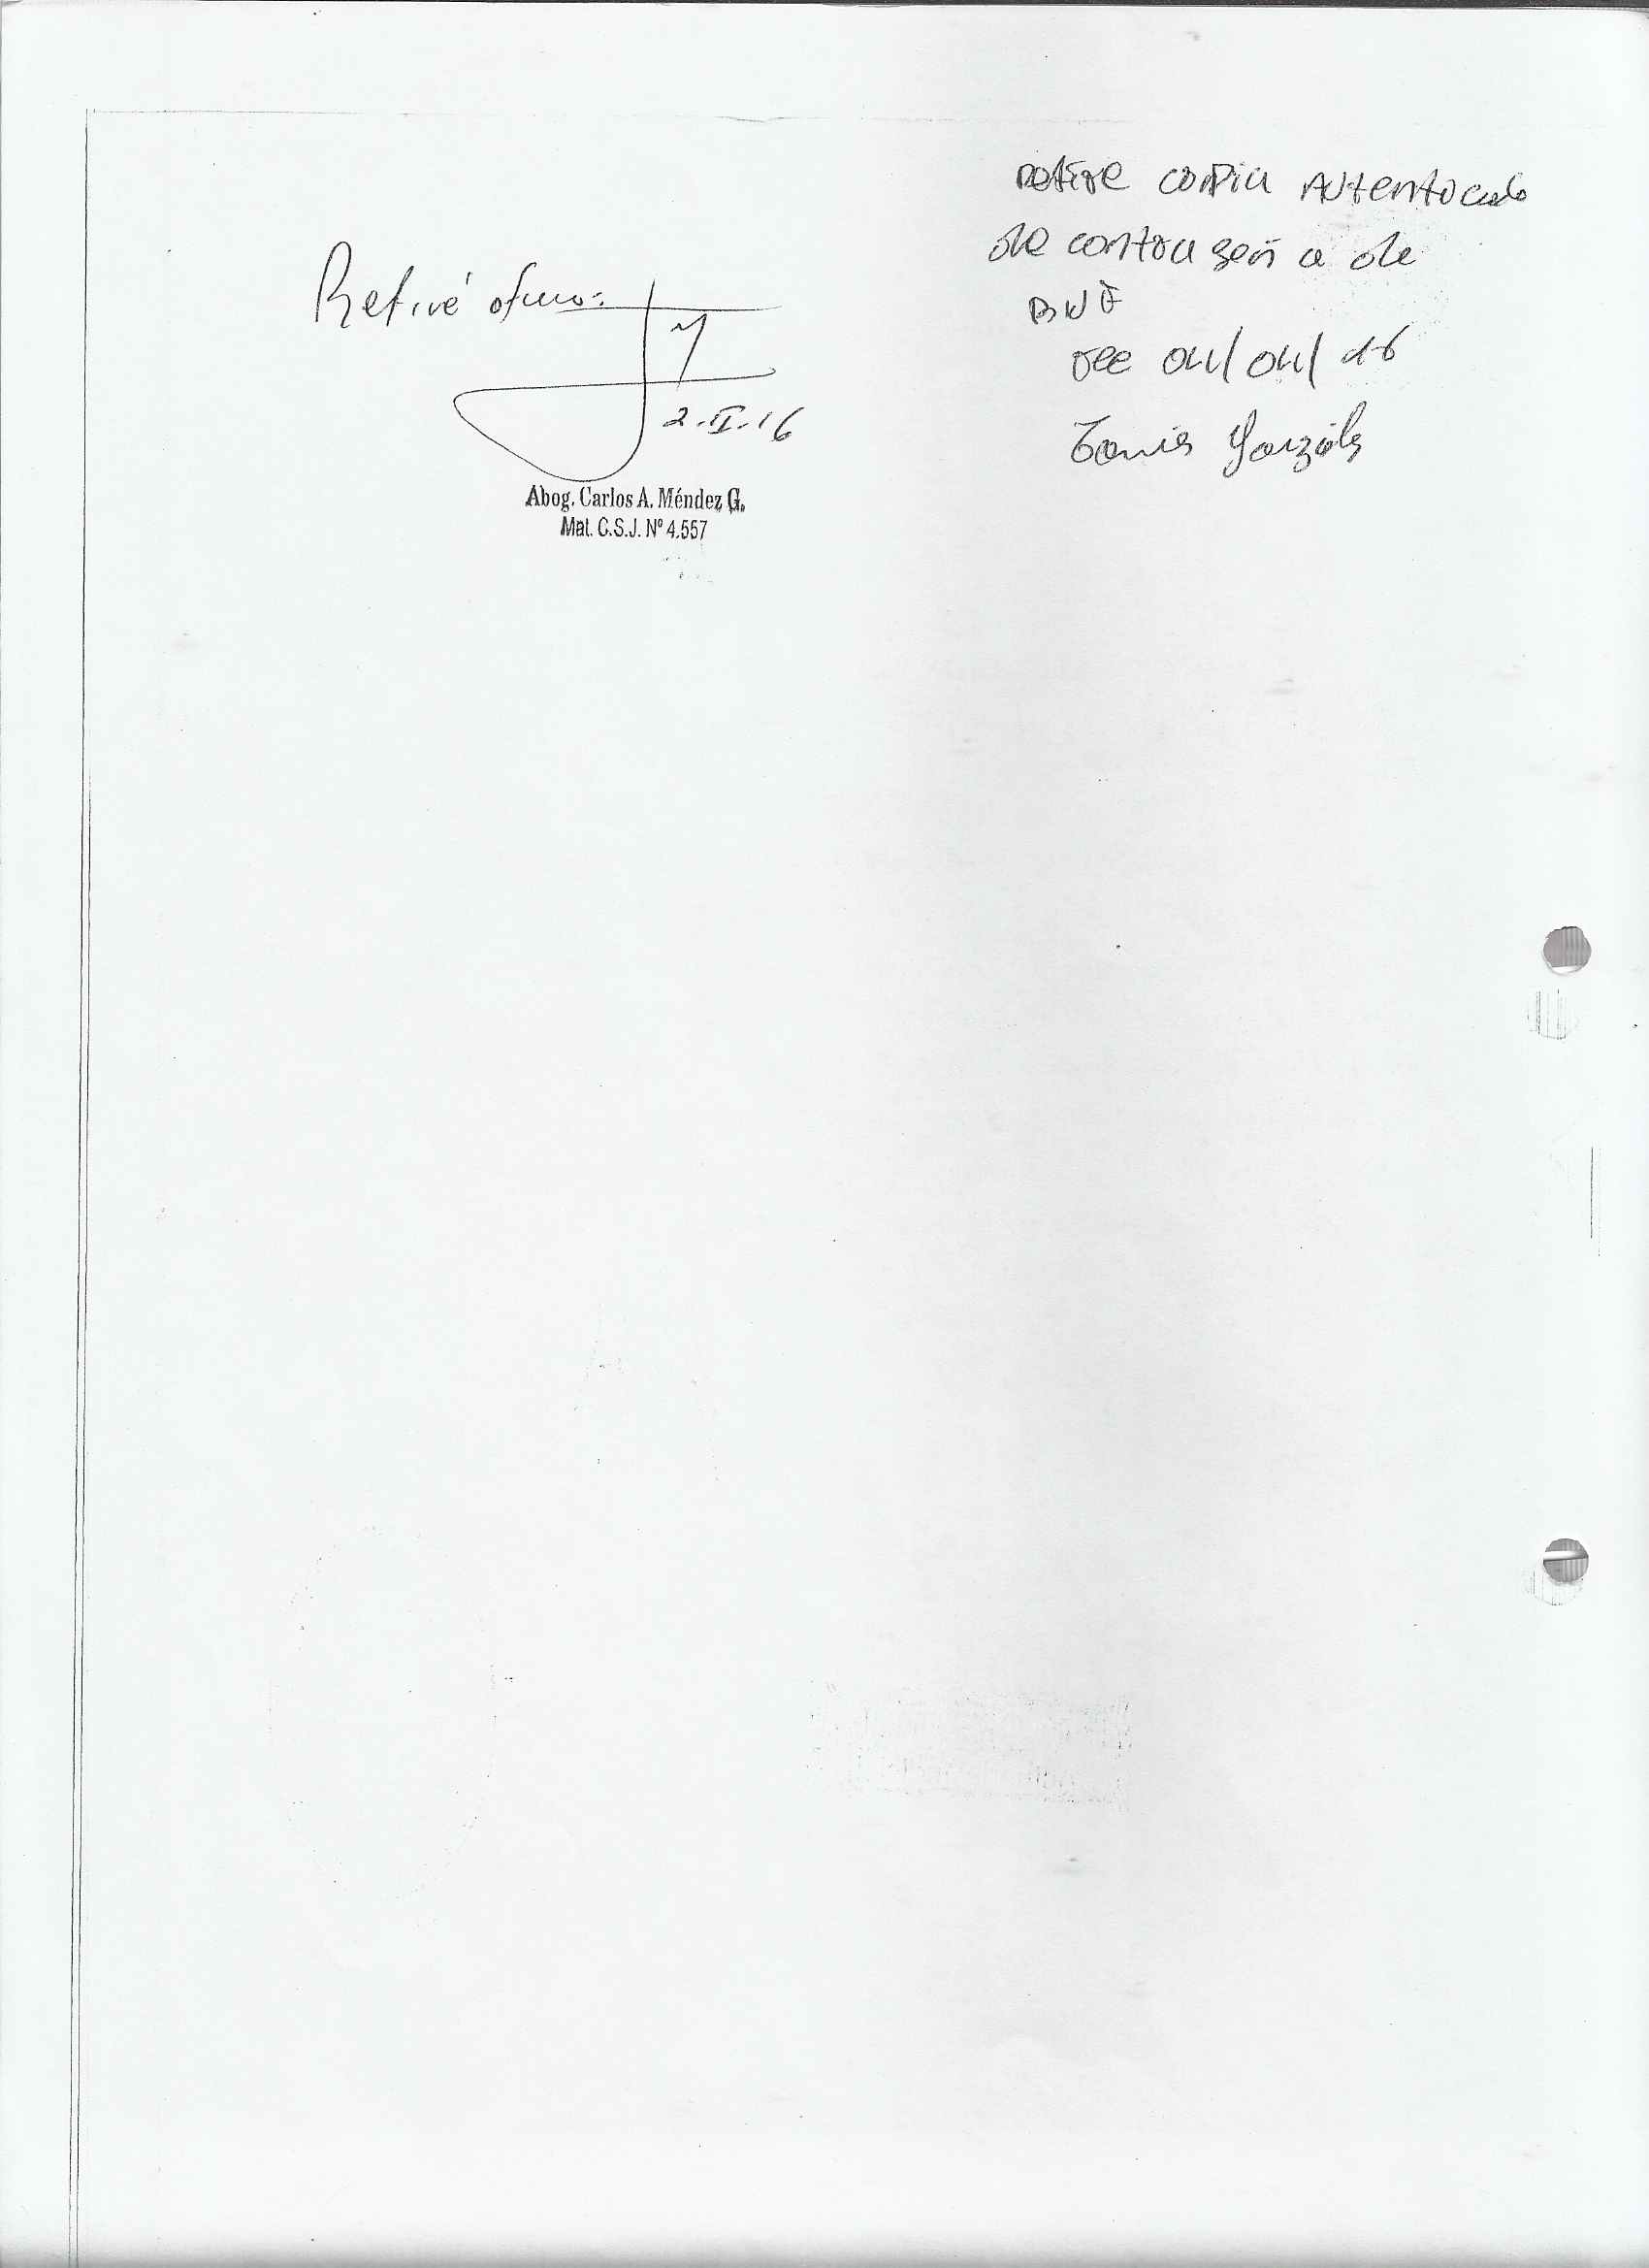 Retiré oficio:
2.II.16
Abog. Carlos A. Méndez G.
Mat. C.S.J. Nº 4.557
Retire copia Autenticada
de contraseña de
BNF
04/04/16
González